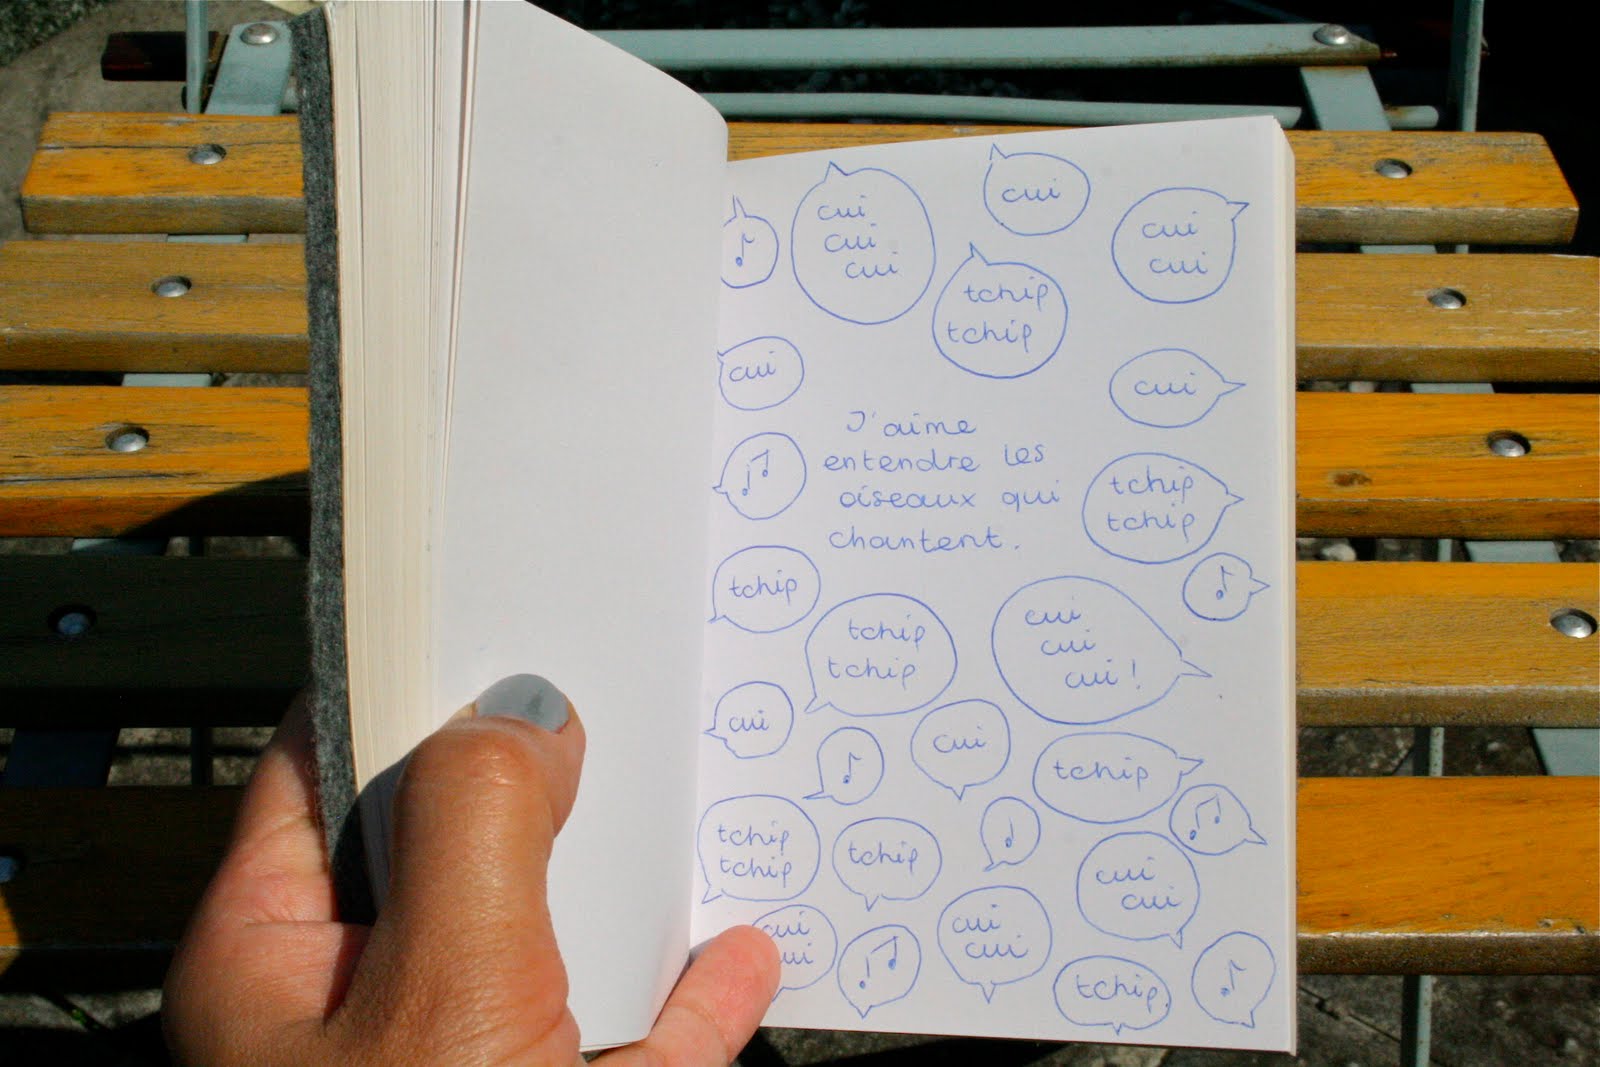 cui
cui
cui
cui
cui
cui
tchip
tchip
cui
cui
J'aime
entendre les
oiseaux qui
chantent.
tchip
tchip
tchip
tchip
tchip
cui
cui
cui !
cui
cui
tchip
tchip
tchip
tchip
cui
cui
cui
cui
cui
cui
tchip.